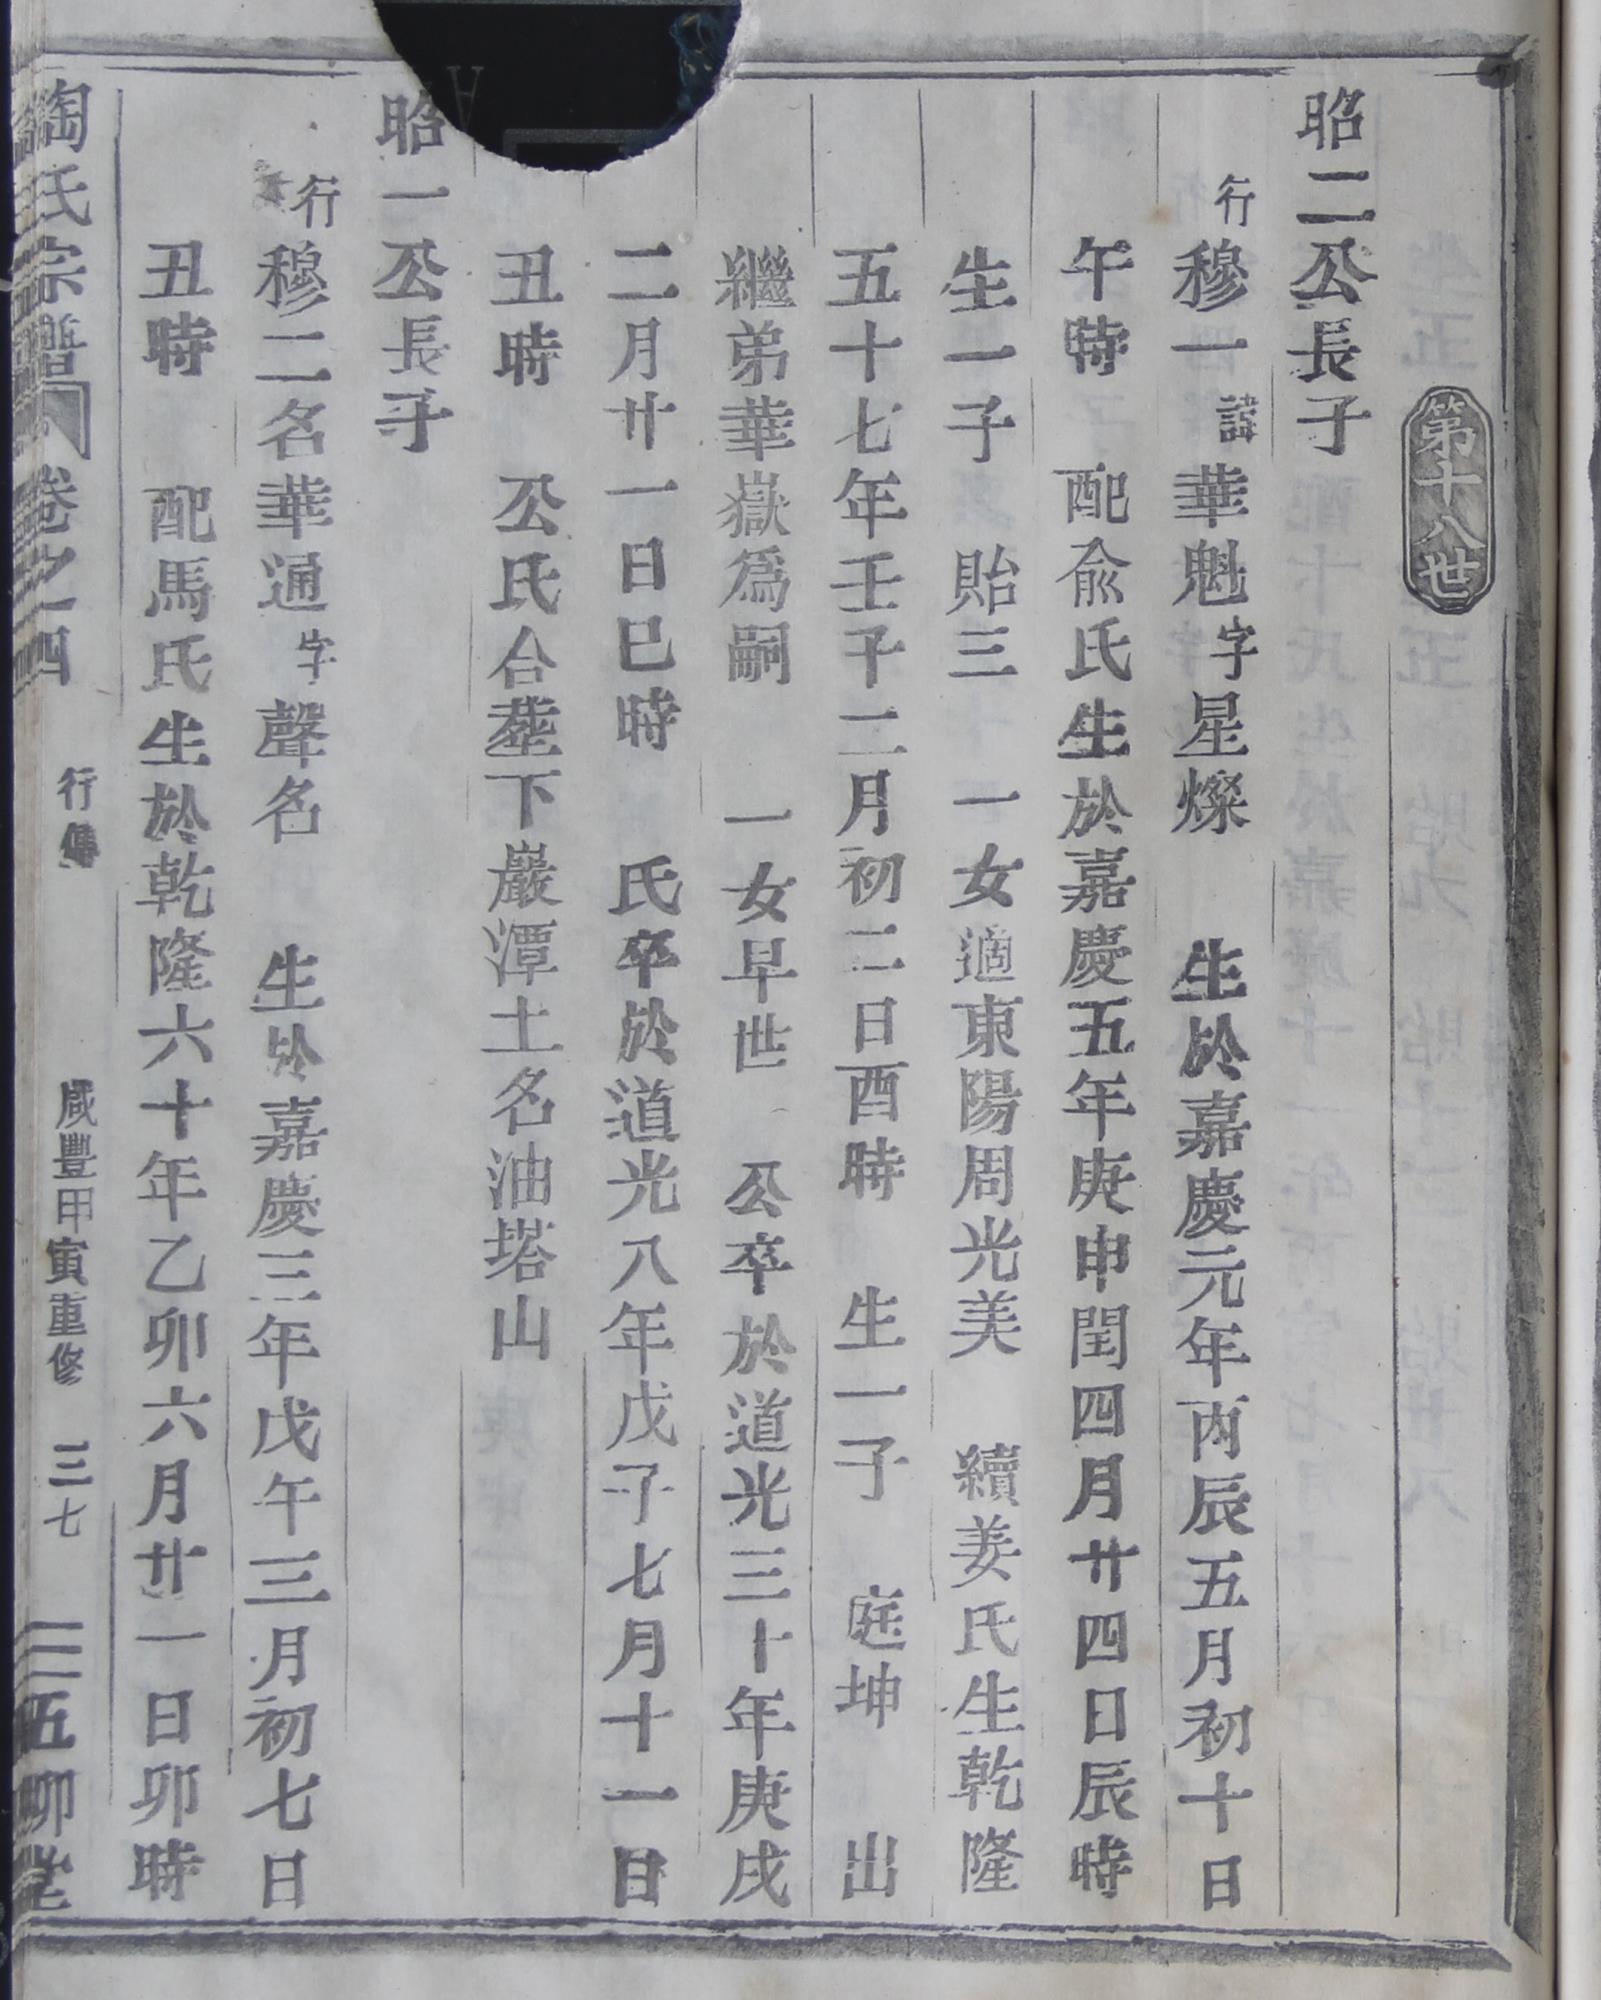 第十八世
昭二公長子
行穆一諱華魁字星燦 生於嘉慶元年丙辰五月初十日
午時 配俞氏生於嘉慶五年庚申閏四月廿四日辰時
生一子 貽三 一女適東陽周光美 續姜氏生乾隆
五十七年壬子二月初二日酉時 生一子 庭坤 出
繼弟華嶽爲嗣 一女早世 公卒於道光三十年庚戌
二月廿一日巳時 氏卒於道光八年戊子七月十一日
丑時 公氏合塟下巖潭土名油塔山
昭一公長子
行穆二名華通字聲名 生於嘉慶三年戊午三月初七日
丑時 配馬氏生於乾隆六十年乙卯六月廿一日卯時
陶氏宗譜 卷之四 行傳 咸豐甲寅重修 三七 五柳堂